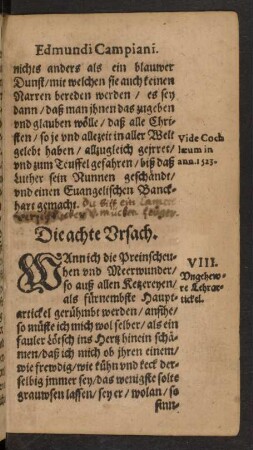 Edmundi Campiani.
nichts anders als ein blauwer
Dunst/mit welchen sie auch keinen
Narren bereden werden / es sey
dann / daß man jhnen das zugeben
vnd glauben wölle / daß alle Chri-
sten / so je vnd allezeit in aller Welt
gelebt haben / allzugleich geirret/
vnd zum Teuffel gefahren / biß daß
Luther sein Nunnen geschändt/
vnd einen Euangelischen Banck-
hart gemacht.
Vide Coch
læum in
ann. 1523.
Die achte Vrsach.
WAnn ich die Preinscheu-
hen vnd Meerwunder/
so auß allen Ketzereyen/
als fürnembste Haupt-
artickel gerühmbt werden / ansihe/
so müste ich mich wol selber / als ein
fauler Lötsch ins Hertz hinein schä-
men/daß ich mich ob jhren einem/
wie frewdig/wie kühn vnd keck der-
selbig jmmer sey/das wenigste solte
grauwsen lassen/sey er / wolan / so
sinn-
VIII.
Vngehew-
re Lehrar-
tickel.